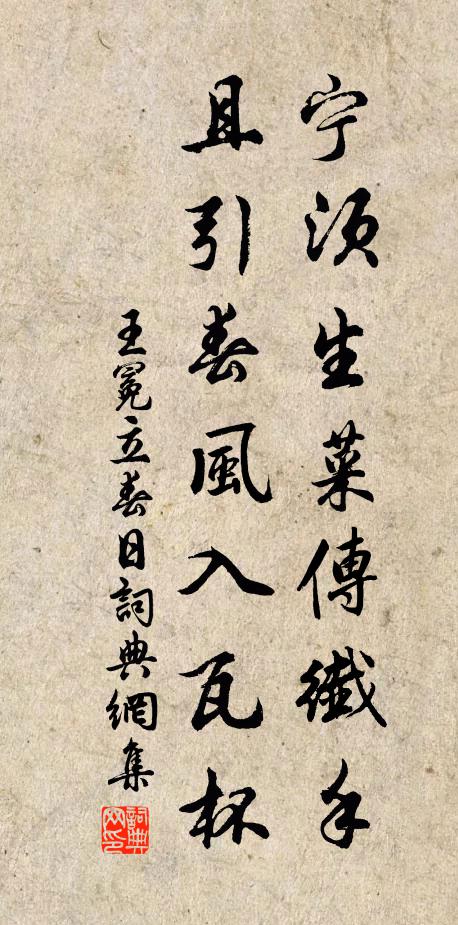 宁須生菜傳纖手
且引春風入瓦杯
王冕立春日詞典網集
詞典網印